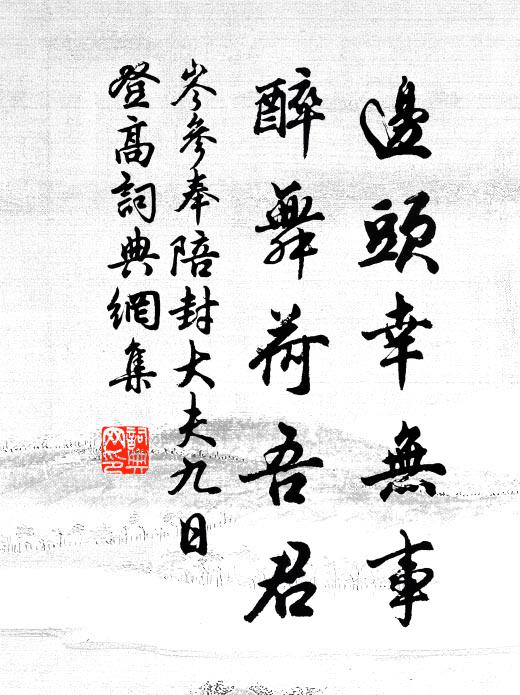 邊頭幸無事
醉舞荷吾君
岑參奉陪封大夫九日
登高詞典網集
詞典
网印